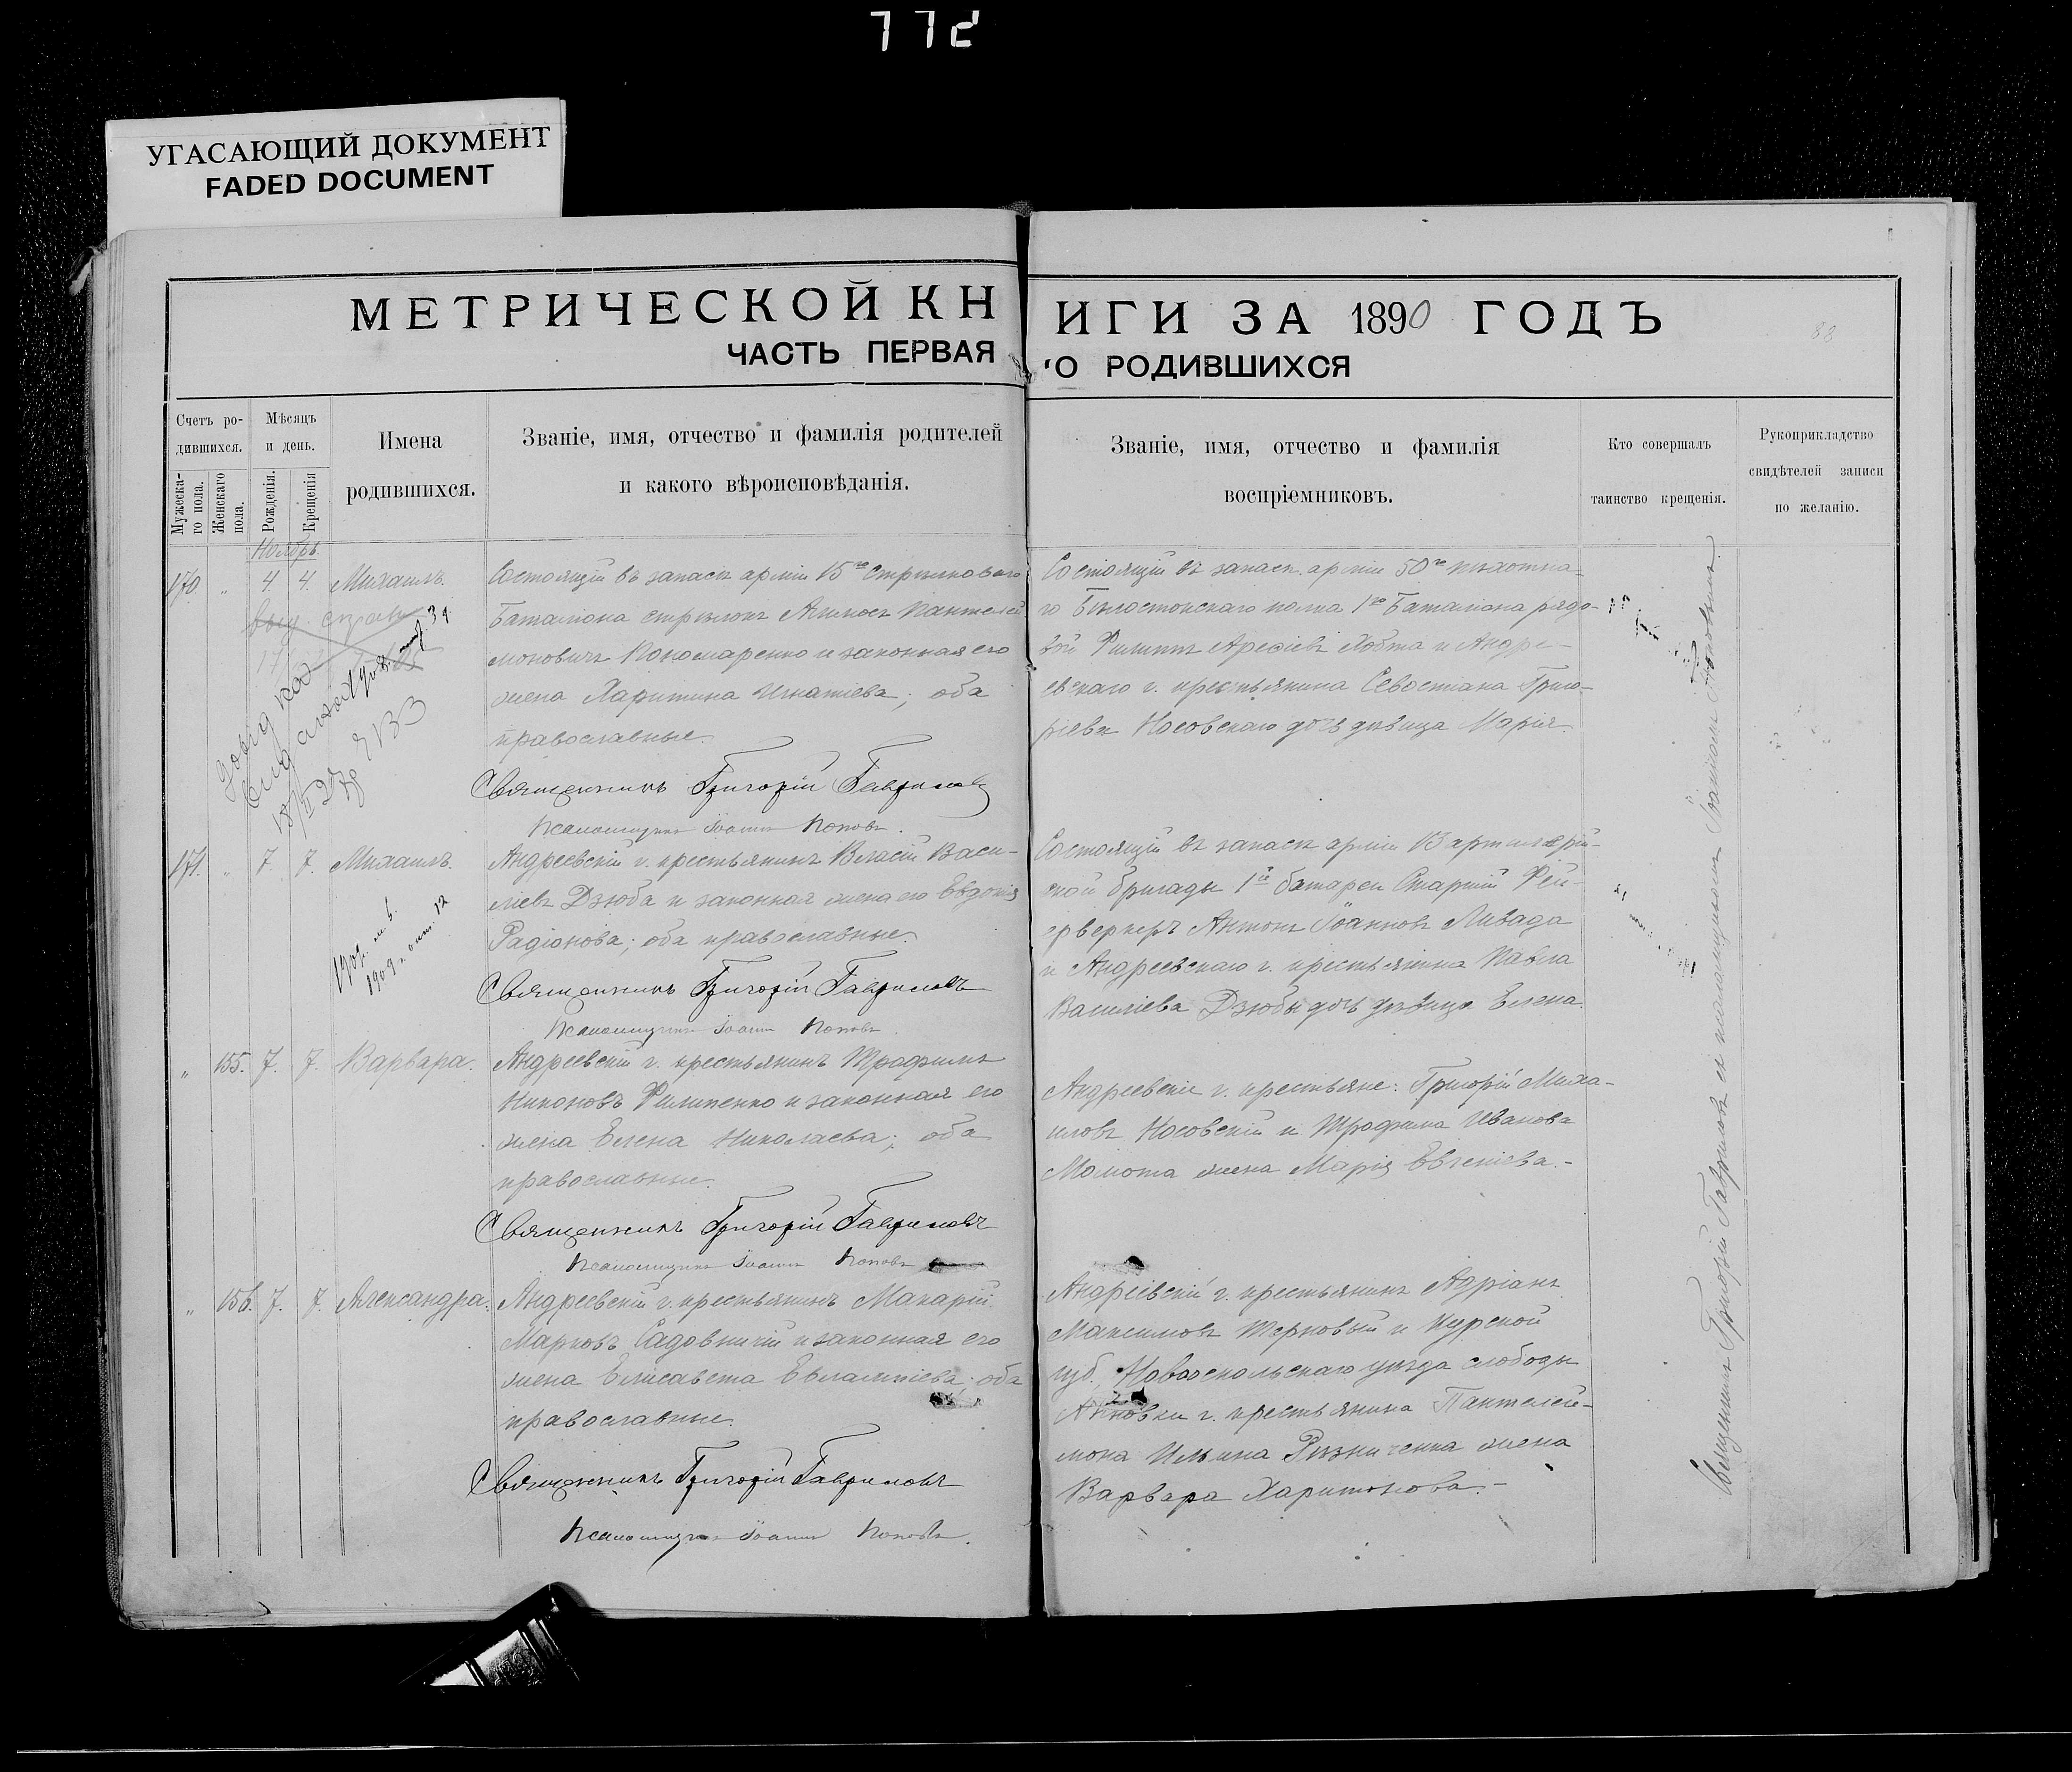 772
УГАСАЮЩИЙ ДОКУМЕНТ
FADED DOCUMENT
МЕТРИЧЕСКОЙ КНИГИ ЗА 1890 ГОДЪ
88
ЧАСТЬ ПЕРВАЯ О РОДИВШИХСЯ
Счетъ родившихся.
Мужескаго пола.
Женскаго пола.
Мѣсяцъ и день.
Рожденія.
Крещенія
Имена родившихся.
Званіе, имя, отчество и фамилія родителей
и какого вѣроисповѣданія.
Званіе, имя, отчество и фамилія
воспріемниковъ.
Кто совершалъ
таинство крещенія.
Рукоприкладство
свидѣтелей записи
по желанію.
Ноябрь.
170. „ 4. 4. Михаилъ.
Состоящій въ запасѣ арміи 15го Стрѣлковаго
баталіона стрѣлокъ
моновичъ Пономаренко и законная его
жена Харитина Игнатіева; оба
православные.
Священникъ Григорій Гавриловъ
Псаломщикъ Іоаннъ Поповъ.
Состоящій въ запасѣ арміи 50го пѣхотна-
го Бѣлостокскаго полка 1го баталіона рядо-
вой Филиппъ и Андре-
евскаго г. крестьянина Севостіана Григо-
ріева Носовскаго дочь дѣвица Марія.
171. „ 7. 7. Михаилъ.
Андреевскій г. крестьянинъ Власій Васи-
ліевъ Дзюба и законная жена его Евдокія
Радіонова; оба православные.
Священникъ Григорій Гавриловъ
Псаломщикъ Іоаннъ Поповъ.
Состоящій въ запасѣ арміи 13 артиллерій-
ской бригады 1й батареи Старшій Фей-
ерверкеръ Антонъ Іоанновъ Ливада
и Андреевскаго г. крестьянина Павла
Василіева Дзюбы дочь дѣвица Елена.
„ 155. 7. 7. Варвара.
Андреевскій г. крестьянинъ Трофимъ
Никоновъ Филипенко и законная его
жена Елена Николаева; оба
православные.
Священникъ Григорій Гавриловъ
Псаломщикъ Іоаннъ Поповъ
Андреевскіе г. крестьяне: Григорій Миха-
иловъ Носовскій и Трофима Иванова
Момота жена Марія Евгеніева.-
„ 156. 7. 7. Александра.
Андреевскій г. крестьянинъ Макарій
Марковъ Садовничій и законная его
жена Елисавета Евлампіева; оба
православные.
Священникъ Григорій Гавриловъ
Псаломщикъ Іоаннъ Поповъ.
Андреевскій г. крестьянинъ Адріанъ
Максимовъ Терновый и Курской
губ. Новооскольскаго уѣзда слободы
г. крестьянина Пантелей-
мона Ильина Рѣзниченка жена
Варвара Харитонова.-
Священникъ Григорій Гавриловъ съ псаломщикомъ Іоанномъ Поповымъ.